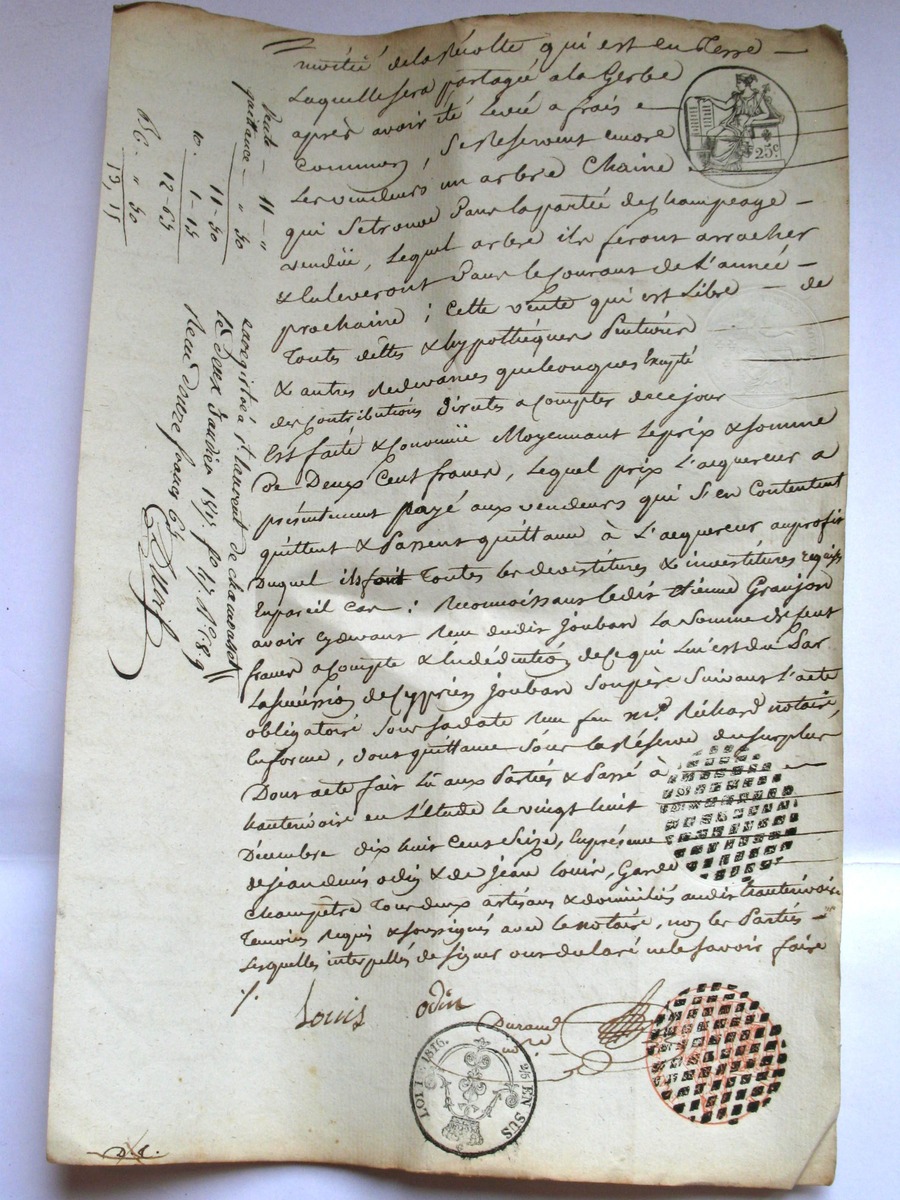 moitié de la Récolte qui est en Terre
Laquelle sera partagée a la Gerbe
après avoir été Levée a frais
commun, se Reservent encore
Les vendeurs un arbre Chaine
qui se trouve Dans la partie de champeage
vendüe, Lequel arbre ils feront arracher
& Enleveront Dans le courant de L'année
prochaine ; Cette vente qui est Libre de
Toutes dettes & hypothèques
& autres Redevances quelconques Excepté
des Contributions Directes a Compter de ce jour
Est faite & Convenüe Moyennant Le prix & somme
de Deux Cent francs, Lequel prix L'acquereur a
présentement payé aux vendeurs qui s'en Contentent
quittent & Passent quittance à L'acquereur au profit
Duquel ils font Toutes les devestitures & investitures requises
En pareil cas ; Reconnoissant ledit Etienne Granjon
avoir cydevant Reçu dudit Joubard La Somme de Cent
francs a Compte & En déduction de ce qui Lui est du Par
La succession de Cyprien Joubard Son père Suivant L'acte
obligatoire Sous sa date Reçu feu Me. Richard notaire,
En forme, Dont quittance Sous La Réserve du Surplus
Dont acte fait Lû aux Parties & Passé à
hauterivoire en L'étude le vingt huit
Décembre dix huit Cent Seize, En présence
de Jean denis odin & de Jean Louis, Garde
Champêtre Tous deux artisans & domiciliés audit hauterivoire
Temoins Requis & soussignés avec le notaire, non les Parties
Lesquelles interpellées de signer ont déclaré ne le savoir faire
./.
Louis odin
Durand
nre
25c
LOI 1816.
2/5 EN SUS
Vente — 11 — "
quittance — " 50
11 - 50
10. 1 - 15
12 - 65
" 50
13, 15
Enregistré à St laurent de chamousset
le Deux Janvier 1817. fo 47. No. 8. 9
Reçu Douze francs 65